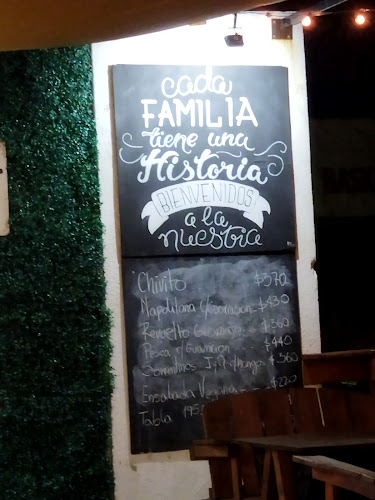 cada
FAMILIA
tiene una
Historia
BIENVENIDOS
a la
nuestra
Chivito $370
Napolitana c/guarnición $430
Revuelto Gramajo $360
Pesca c/Guarnición $440
Sorrentinos J y Q $360
Ensalada $220
Tabla